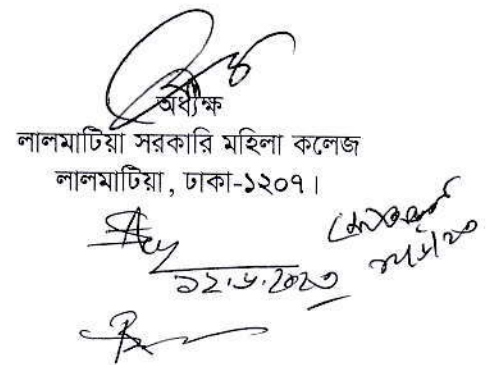 অধ্যক্ষ
লালমাটিয়া সরকারি মহিলা কলেজ
লালমাটিয়া, ঢাকা-১২০৭।
১২.৬.২০২৩